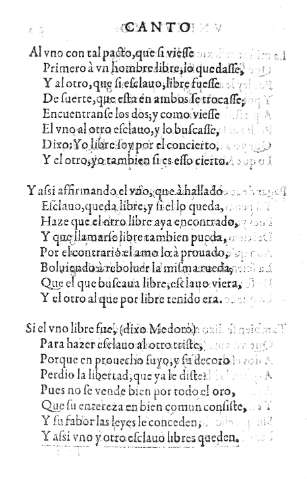 CANTO
Al vno con tal pacto, que si viesse
Primero à vn hombre libre, lo quedasse,
Y al otro, que si esclauo, libre fuesse
De suerte, que esta en ambos se trocasse,
Encuentranse los dos; y como viesse
El vno al otro esclauo, y lo buscasse,
Dixo; Yo libre soy por el concierto,
Y el otro, yo tambien si es esso cierto.
Y assi affirmando el vno, que à hallado
Esclauo, queda libre, y si el lo queda,
Haze que el otro libre aya encontrado,
Y que llamarse libre tambien pueda,
Por el contrario el amo lo à prouado,
Boluiendo à reboluer la misma rueda,
Que el que buscaua libre, esclauo viera,
Y el otro al que por libre tenido era.
Si el vno libre fue, (dixo Medoro)
Para hazer esclauo al otro triste,
Porque en prouecho suyo, y su decoro
Perdio la libertad, que ya le diste?
Pues no se vende bien por todo el oro,
Que su entereza en bien comun consiste,
Y su fabor las leyes le conceden,
Y assi vno y otro esclauo libres queden.